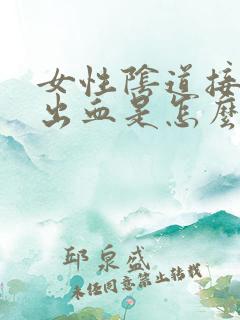 女性陰道接
出血是怎麼
邱泉盛
未经同意禁止转载